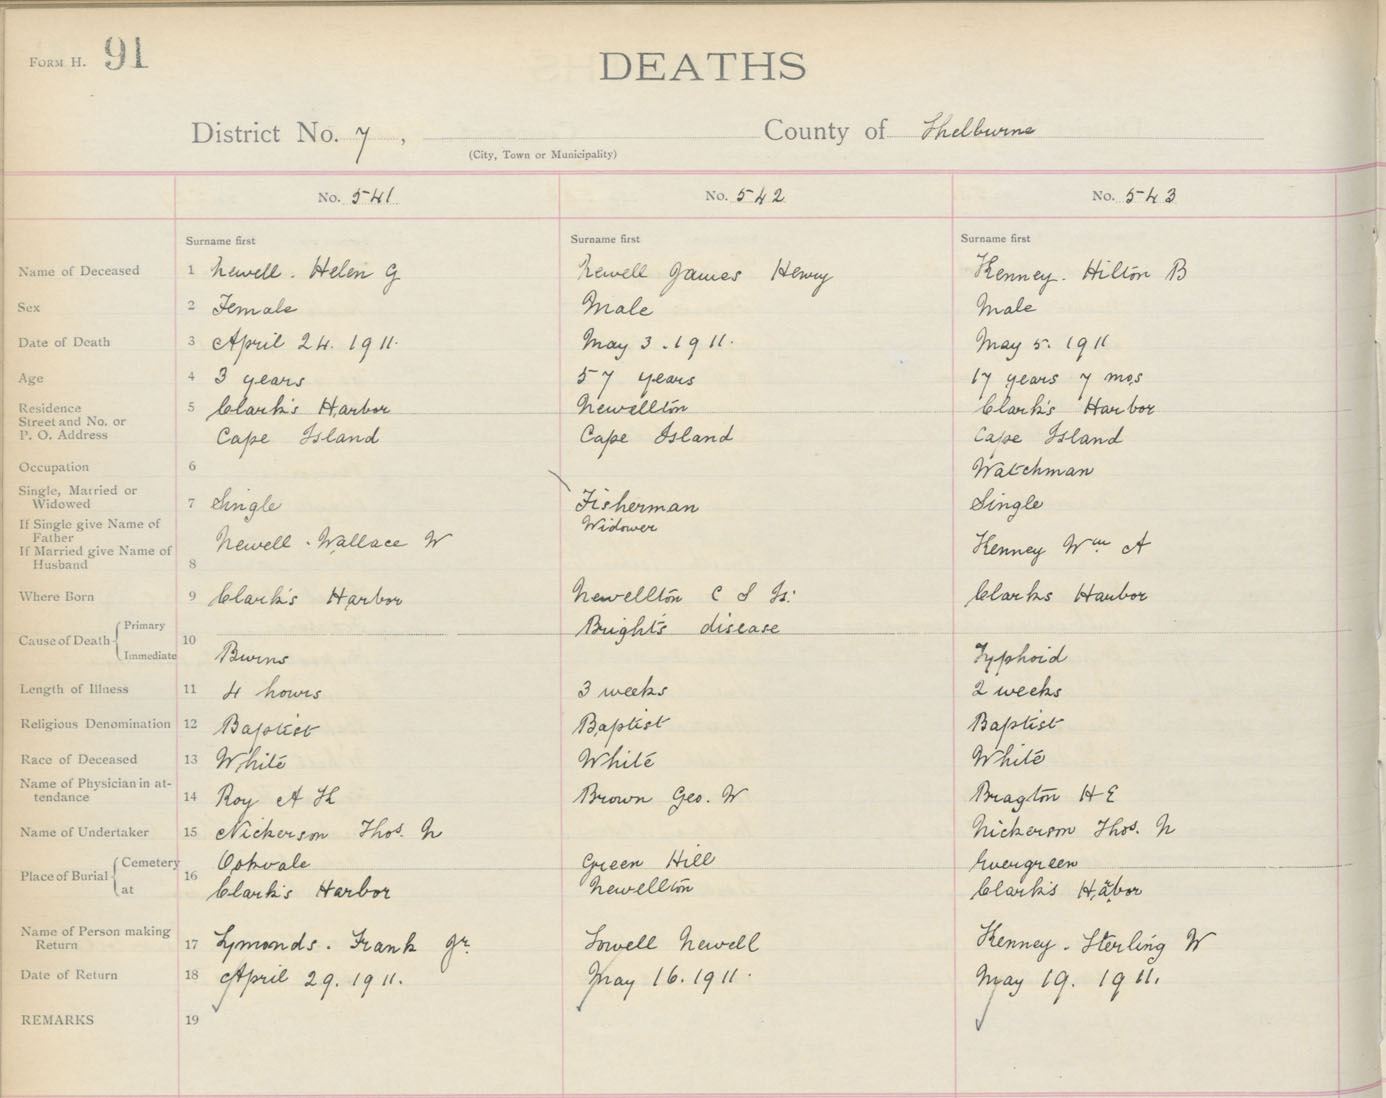 FORM H. 91
DEATHS
District No. 7, County of Shelburne
(City, Town or Municipality)
No. 541 No. 542 No. 543
Surname first Surname first Surname first
Name of Deceased 1 Newell. Helen G Newell James Henry Kenney. Hilton B
Sex 2 Female Male Male
Date of Death 3 April 24. 1911. May 3. 1911. May 5. 1911
Age 4 3 years 57 years 17 years 7 mos
Residence 5 Clark's Harbor Newellton Clark's Harbor
Street and No. or
P. O. Address Cape Island Cape Island Cape Island
Occupation 6 Watchman
Single, Married or
Widowed 7 Single Fisherman Single
Widower
If Single give Name of
Father Newell. Wallace W Kenney Wm A
If Married give Name of
Husband 8
Where Born 9 Clark's Harbor Newellton C S Is: Clarks Harbor
Cause of Death 10 Primary Bright's disease
Immediate Burns Typhoid
Length of Illness 11 4 hours 3 weeks 2 weeks
Religious Denomination 12 Baptist Baptist Baptist
Race of Deceased 13 White White White
Name of Physician in at-
tendance 14 Roy A Brown Geo. W H E
Name of Undertaker 15 Nickerson Thos. N Nickerson Thos. N
Place of Burial 16 Cemetery Green Hill Evergreen
at Clark's Harbor Newellton Clark's Harbor
Name of Person making
Return 17 Symonds. Frank Jr. Lowell Newell Kenney. Sterling W
Date of Return 18 April 29. 1911. May 16. 1911. May 19. 1911.
REMARKS 19